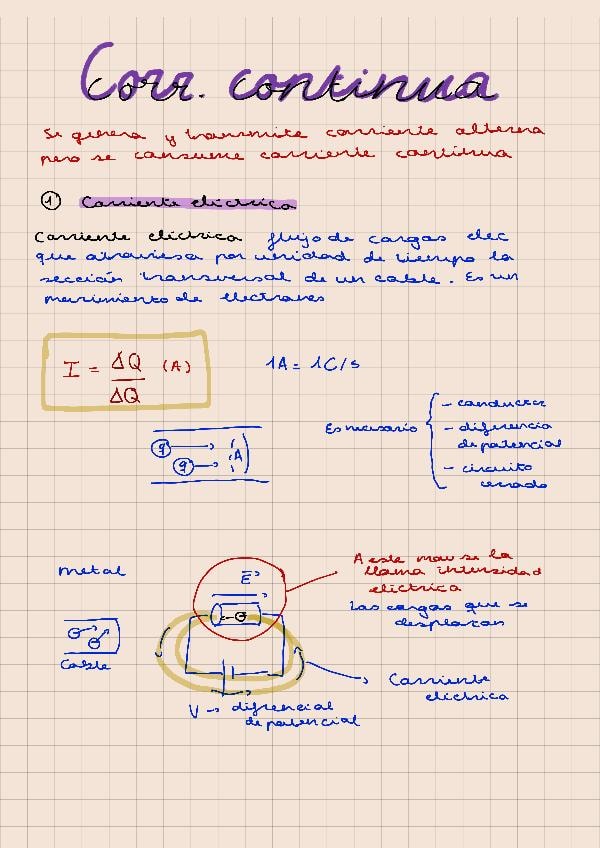 Corr. continua
Se genera y transmite corriente alterna
pero se consume corriente continua
1 Corriente eléctrica
Corriente eléctrica flujo de cargas elec
que atraviesa por unidad de tiempo la
sección transversal de un cable. Es un
movimiento de electrones
I = ΔQ / ΔQ (A)
1A = 1C/s
Es necesario
- conductor
- diferencia
de potencial
- circuito
cerrado
q
q
A
metal
Cable
E
A este mov se la
llama intensidad
eléctrica
Las cargas que se
desplazan
Corriente
eléctrica
V → diferencial
de potencial